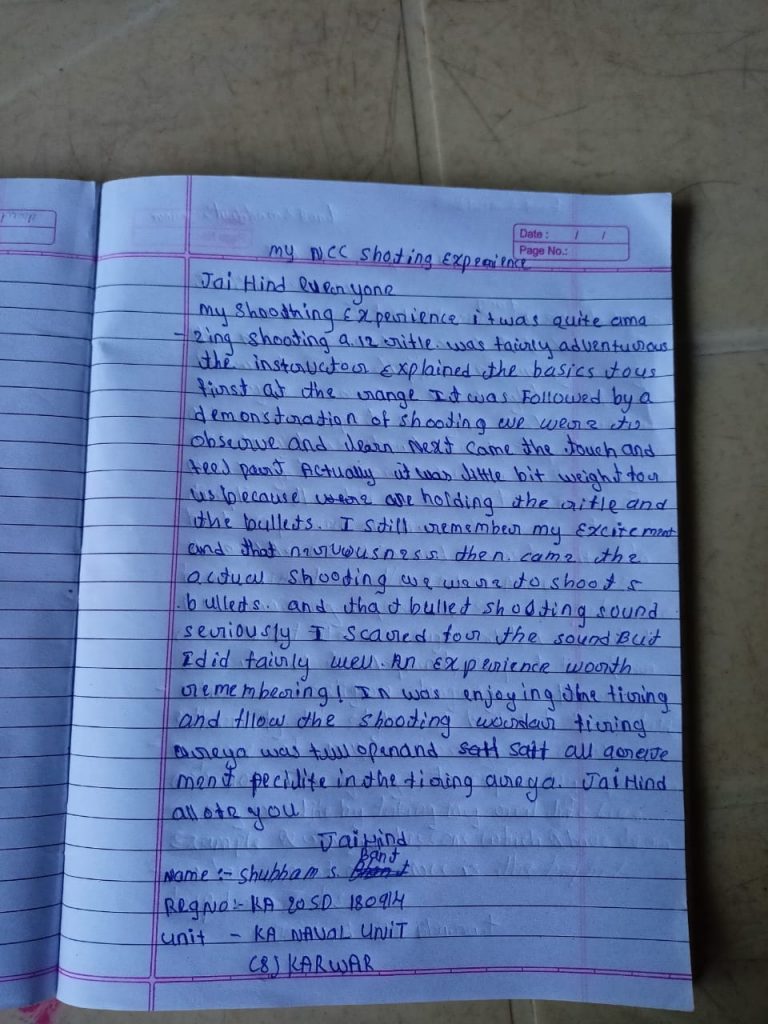 Date : / /
Page No.:
my NCC Shoting Experience
Jai Hind everyone
my Shoothing Experience it was quite ama
-zing shooting a .12 rifle was fairly adventurous
the instructor Explained the basics to us
first at the range It was Followed by a
demonstration of shooting we were to
observe and learn Next came the touch and
feel part Actually it was little bit weight for
us because were are holding the rifle and
the bullets. I still remember my Excitement
and that nervuousness then came the
actual shooding we were to shoot 5
bullets. and that bullet shooting sound
seriously I scared for the sound But
I did fairly well. An Experience worth
remembering! In was enjoying the firing
and fllow the shooding firing
areya was full open and saft all
ment in the firing areya. Jai Hind
all ofe you
Jai Hind
Bant
Name :- Shubham S.
Reg No :- KA 20 SD 180914
unit - KA NAVAL UNIT
(8) KARWAR